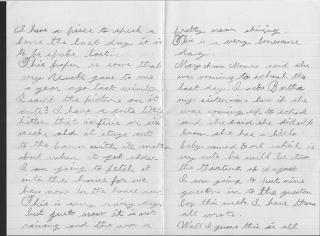 I have a piece to speak a
home the last day it is
to be spoke last.
This paper is some that
my Uncle gave to me
a year ago last winter
I isn't the picture on it
cute? I have a cute little
kitten that is five or six
weeks old it stays out
to the barn with its mother
but when it gets older
I am going to fetch it
into the house for we
have now in the house now.
This is very rainy day
but just now it is not
raining and the sun is
pretty near shining.
This is a very lonesome
day.
Mary Ann said she
was coming to school the
last day. I asked Bertha
my sister in law if she
was coming up to school
and she said she didn't
know she has a little
baby named Earl which is
very cute he will be two
the thirteenth of August
I am going to put nine
questions in to the question
box this week I have them
all wrote.
Well I guess this is all